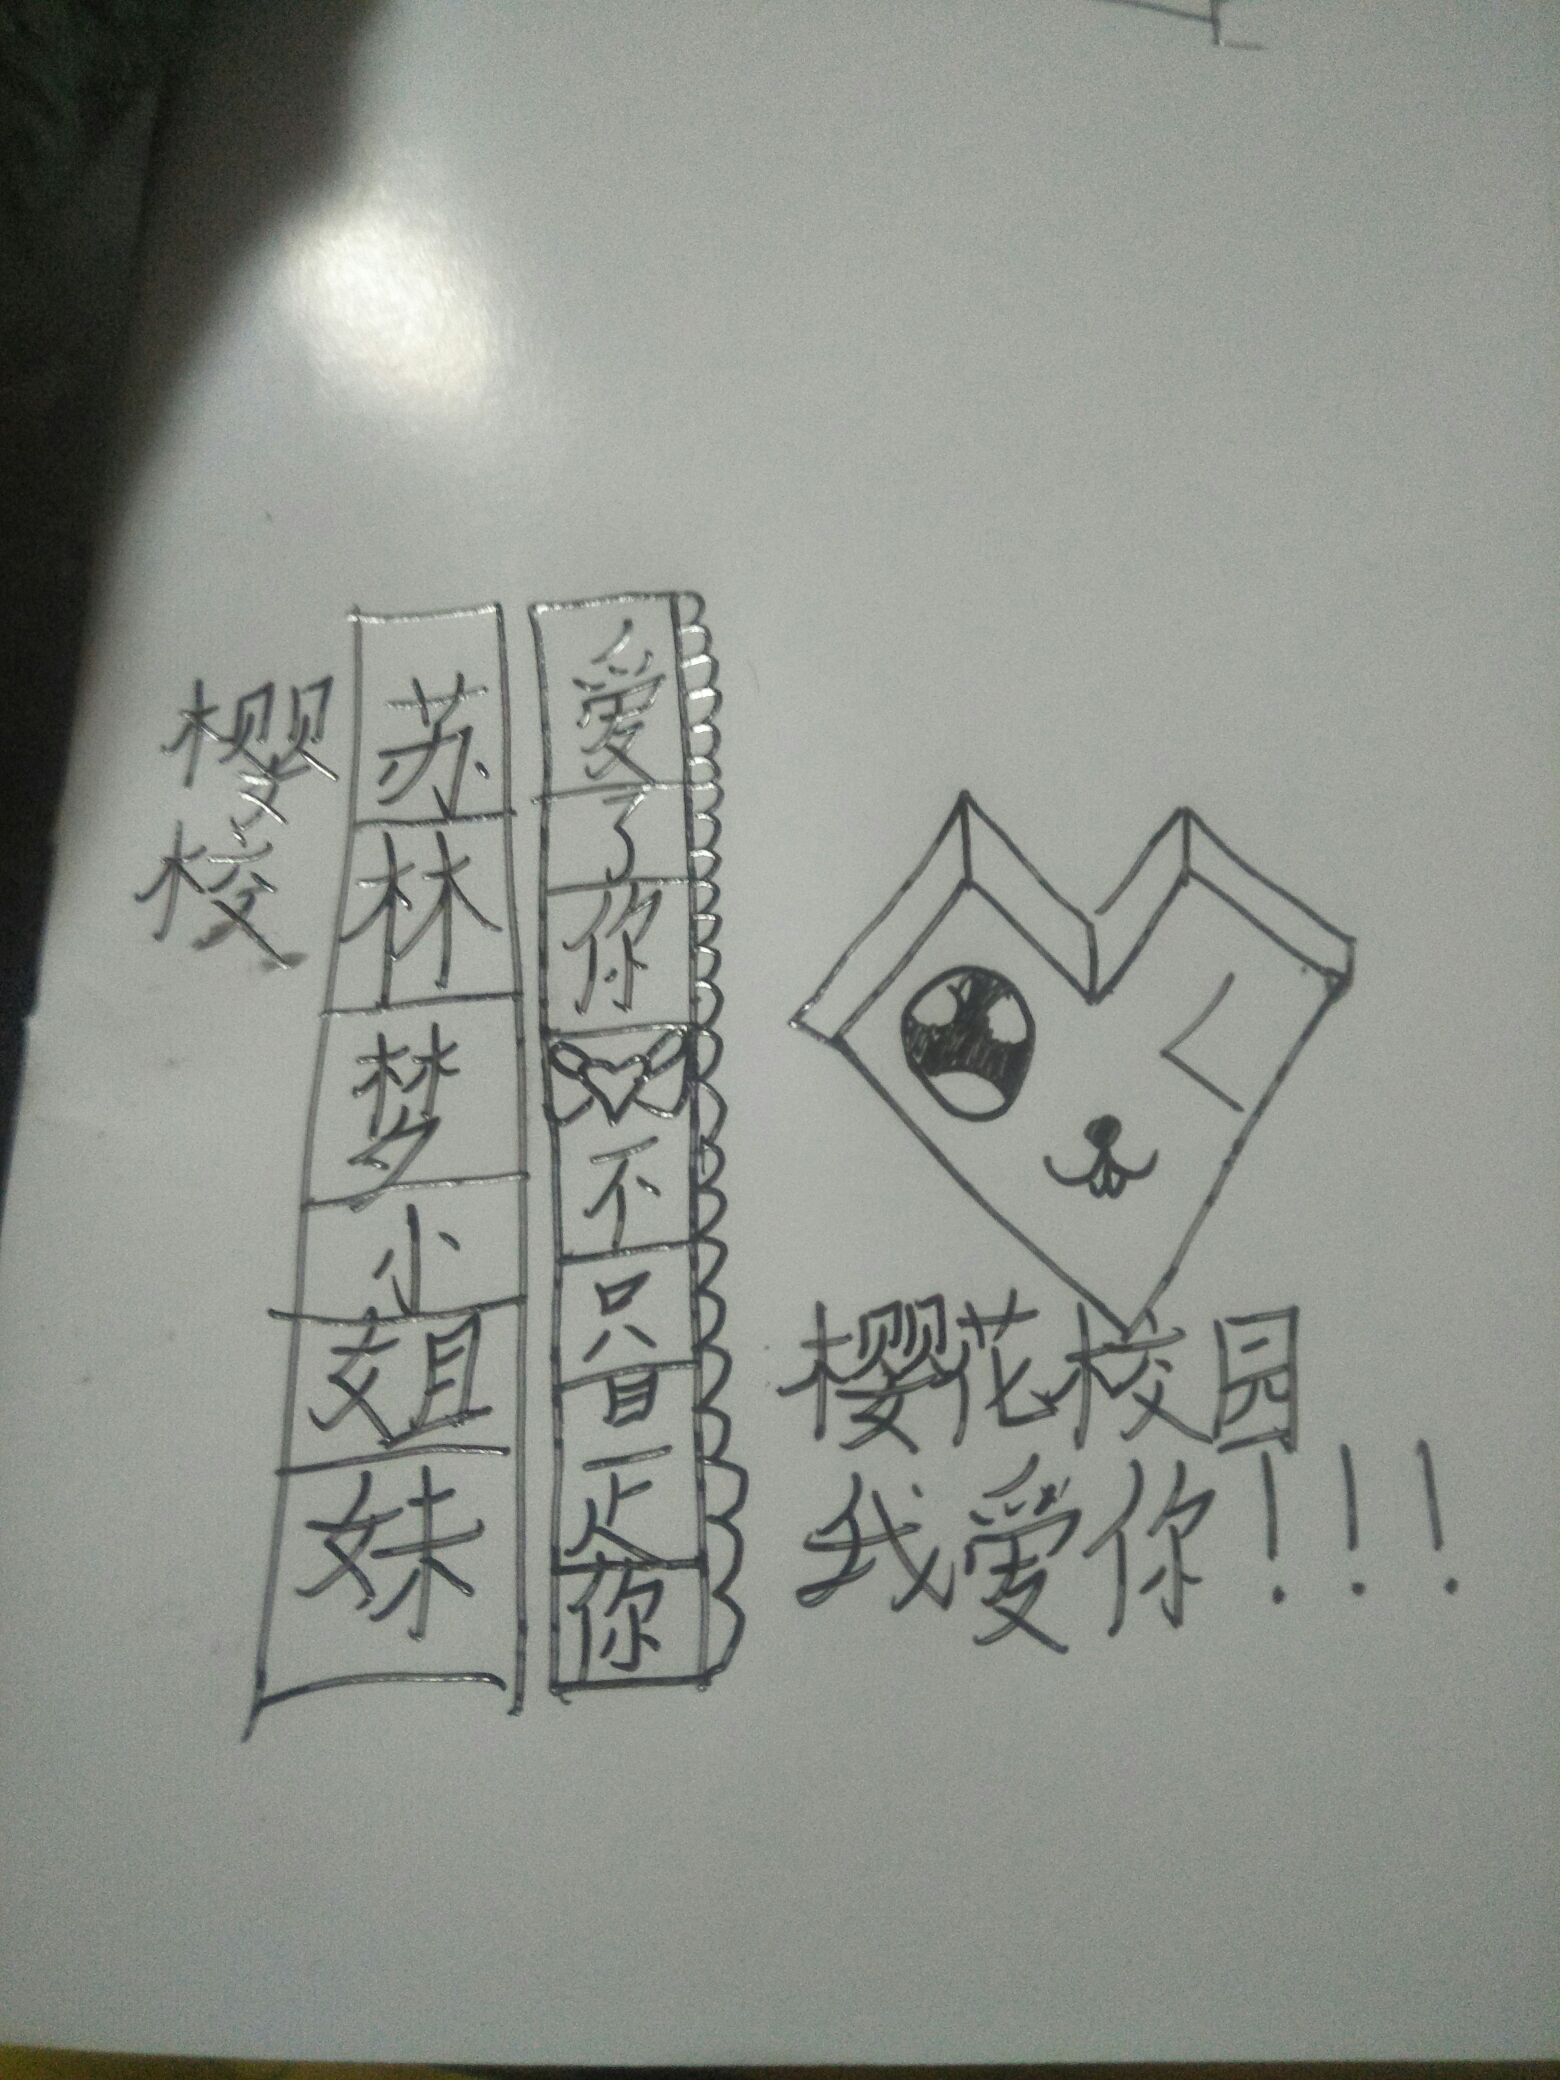 樱校
苏林梦小姐妹
爱了你
不只是你
樱花校园
我爱你!!!